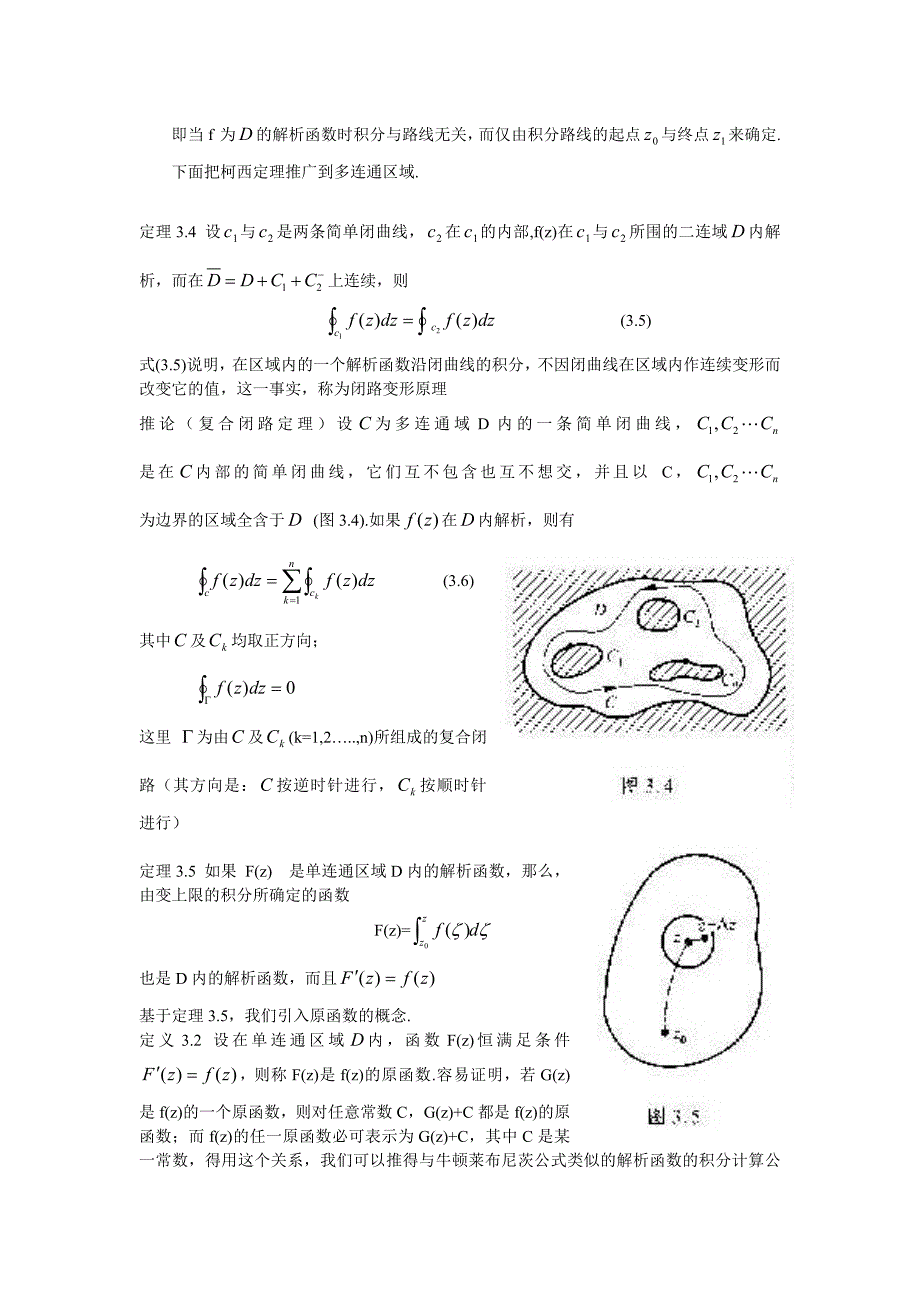 即当 f 为 D 的解析函数时积分与路线无关，而仅由积分路线的起点 z₀ 与终点 z₁ 来确定.
下面把柯西定理推广到多连通区域.
定理 3.4 设 c₁ 与 c₂ 是两条简单闭曲线， c₂ 在 c₁ 的内部,f(z)在 c₁ 与 c₂ 所围的二连域 D 内解
析，而在 D̅ = D + C₁ + C₂⁻ 上连续，则
∮_{c₁} f(z)dz = ∮_{c₂} f(z)dz (3.5)
式(3.5)说明，在区域内的一个解析函数沿闭曲线的积分，不因闭曲线在区域内作连续变形而
改变它的值，这一事实，称为闭路变形原理
推论（复合闭路定理）设 C 为多连通域 D 内的一条简单闭曲线， C₁,C₂⋯Cₙ
是在 C 内部的简单闭曲线，它们互不包含也互不想交，并且以 C， C₁,C₂⋯Cₙ
为边界的区域全含于 D (图 3.4).如果 f(z) 在 D 内解析，则有
∮_c f(z)dz = ∑_{k=1}^{n} ∮_{c_k} f(z)dz (3.6)
其中 C 及 C_k 均取正方向；
∮_Γ f(z)dz = 0
这里 Γ 为由 C 及 C_k (k=1,2…..,n)所组成的复合闭
路（其方向是： C 按逆时针进行， C_k 按顺时针
进行）
D
C₁
Cₙ
C
图 3.4
定理 3.5 如果 F(z) 是单连通区域 D 内的解析函数，那么，
由变上限的积分所确定的函数
F(z)= ∫_{z₀}^{z} f(ζ)dζ
也是 D 内的解析函数，而且 F′(z) = f(z)
基于定理 3.5，我们引入原函数的概念.
定义 3.2 设在单连通区域 D 内，函数 F(z)恒满足条件
F′(z) = f(z)，则称 F(z)是 f(z)的原函数.容易证明，若 G(z)
是 f(z)的一个原函数，则对任意常数 C，G(z)+C 都是 f(z)的原
函数；而 f(z)的任一原函数必可表示为 G(z)+C，其中 C 是某
一常数，得用这个关系，我们可以推得与牛顿莱布尼茨公式类似的解析函数的积分计算公
z
z₀
图 3.5